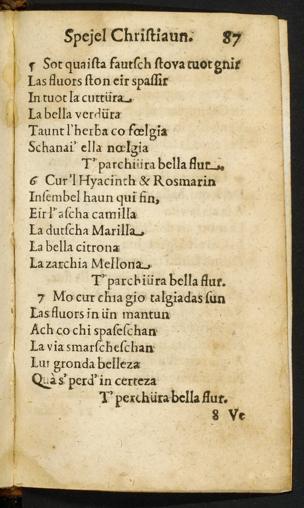 Spejel Christiaun. 87
5 Sot quaista fautsch stova tuot gnir
Las fluors ston eir spassir
In tuot la cuttüra
La bella verdüra
Taunt l'herba co fœlgia
Schanai' ella nœlgia
T'parchiüra bella flur
6 Cur'l Hyacinth & Rosmarin
Insembel haun qui fin,
Eir l'ascha camilla
La dutscha Marilla
La bella citrona
La zarchia Mellona
T'parchiüra bella flur.
7 Mo cur chia gio talgiadas sun
Las fluors in ün mantun
Ach co chi spaseschan
La via smarscheschan
Lur gronda belleza
Quà s'perd' in certeza
T'perchüra bella flur.
8 Ve